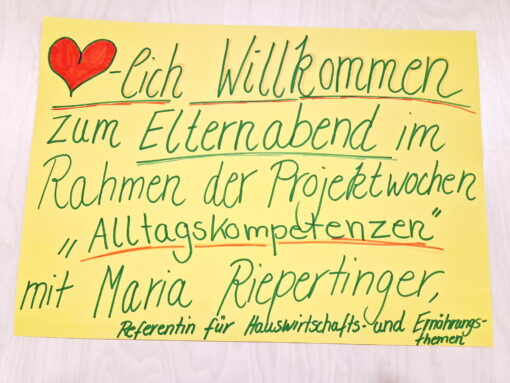 -lich Willkommen
zum Elternabend im
Rahmen der Projektwochen
„Alltagskompetenzen"
mit Maria Riepertinger,
Referentin für Hauswirtschafts- und Ernährungs-
themen